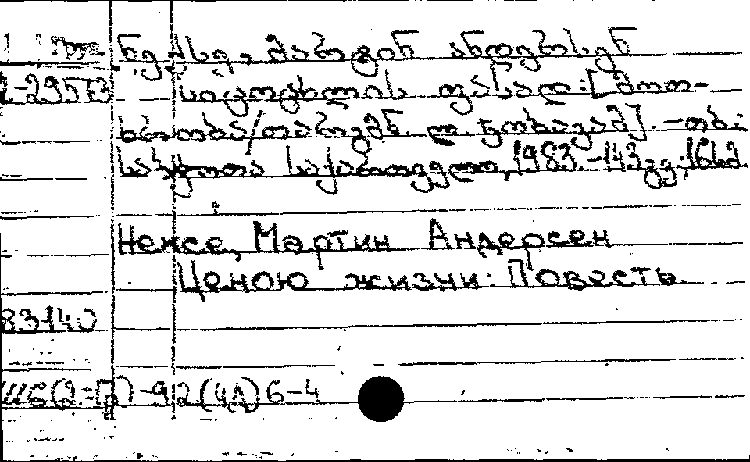 ნექსე, მარტინ ანდერსენ
-29573 სიცოცხლის ფასად: [მოთ-
ხრობა/თარგმნ. დ. წოხავამ]. -თბ.:
საბჭოთა საქართველო, 1983.-143გვ.;16სმ.
Нексе, Мартин Андерсен
Ценою жизни: Повесть.
83140
-92(4Д)6-4